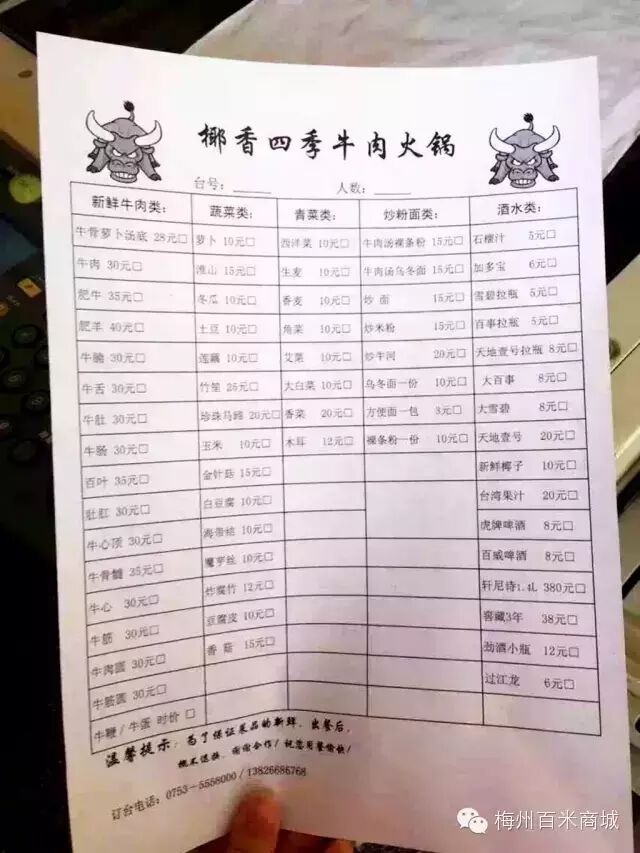 椰香四季牛肉火锅
台号：_____ 人数：_____
新鲜牛肉类： 蔬菜类： 青菜类： 炒粉面类： 酒水类：
牛骨萝卜汤底 28元□ 萝卜 10元□ 西洋菜 10元□ 牛肉汤裸条粉 15元□ 石榴汁 5元□
牛肉 30元□ 淮山 15元□ 生麦 10元□ 牛肉汤乌冬面 15元□ 加多宝 6元□
肥牛 35元□ 冬瓜 10元□ 香麦 10元□ 炒面 15元□ 雪碧拉瓶 5元□
肥羊 40元□ 土豆 10元□ 角菜 10元□ 炒米粉 15元□ 百事拉瓶 5元□
牛腩 30元□ 莲藕 10元□ 艾菜 10元□ 炒牛河 20元□ 天地壹号拉瓶 8元□
牛舌 30元□ 竹笙 25元□ 大白菜 10元□ 乌冬面一份 10元□ 大百事 8元□
牛肚 30元□ 珍珠马蹄 20元□ 香菜 20元□ 方便面一包 3元□ 大雪碧 8元□
牛肠 30元□ 玉米 10元□ 木耳 12元□ 裸条粉一份 10元□ 天地壹号 20元□
百叶 35元□ 金针菇 15元□ 新鲜椰子 10元□
肚肛 30元□ 白豆腐 10元□ 台湾果汁 20元□
牛心顶 30元□ 海带结 10元□ 虎牌啤酒 8元□
牛骨髓 35元□ 魔芋丝 10元□ 百威啤酒 8元□
牛心 30元□ 炸腐竹 12元□ 轩尼诗1.4L 380元□
牛筋 30元□ 豆腐皮 10元□ 窖藏3年 38元□
牛肉圆 30元□ 香菇 15元□ 劲酒小瓶 12元□
牛筋圆 30元□ 过江龙 6元□
牛鞭/牛蛋 时价 □
温馨提示：为了保证菜品的新鲜，出餐后，
概不退换，谢谢合作！祝您用餐愉快！
订台电话：0753-5558000/13826686768
梅州百米商城